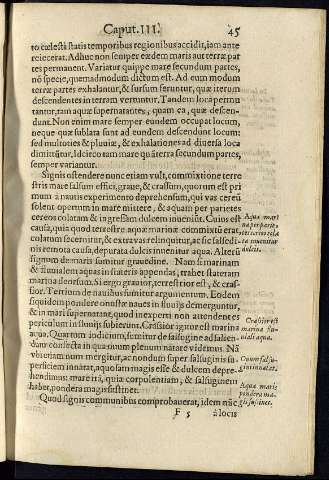 Caput. III. 45
to cælesti statis temporibus regionibus accidit, iam ante
reiecerat. Adhuc non semper eædem maris aut terræ par
tes permanent. Variatur quippe mare secundum partes,
nō specie, quemadmodum dictum est. Ad eum modum
terræ partes exhalantur, & sursum feruntur, quæ iterum
descendentes in terram vertuntur. Tandem loca permu
tantur, tam aquæ supernatantes, quam ea, quæ descen-
dunt. Non enim mare semper eundem occupat locum,
neque quæ sublata sunt ad eundem descendunt locum:
sed multoties & pluuiæ, & exhalationes ad diuersa loca
dimittūtur, Id circo tam mare quā terra secundum partes,
semper variantur.
Signis ostendere nunc etiam vult, commixtione terre
stris mare salsum effici, graue, & crassum, quorum est pri
mum à nautis experimento deprehensum, qui vas cereū
solent opertum in mare mittere, & aquam per parietes
cereos colatam & ingressam dulcem inueniūt. Cuius est
causa, quia quod terrestre aquæ marinæ commixtū erat
colatum secernitur, & extra vas relinquitur, ac sic salsedi-
nis remota causa, depurata dulcis inuenitur aqua. Alterū
signum de maris sumitur grauedine. Nam si marinam
& fluuialem aquas in stateris appendas, trahet stateram
marina deorsum. Si ergo grauior, terrestrior est, & cras-
sior. Tertium de nauibus sumitur argumentum. Eodem
siquidem pondere onustæ naues in fluuijs demerguntur,
& in mari supernatant, quod inexperti non attendentes
periculum in fluuijs subierunt. Crassior igitor est marina
aqua. Quartom iudicium, sumitur de salsugine ad salien-
dum confecta in qua ouum plenum natare videmus. Nā
vbi etiam num mergitur, ac nondum super salsuginis su-
perficiem innatat, aquo sam magis esse & dulcem depre-
hendimus: mare itā, quia corpulentiam, & salsuginem
habet, pondera magis sustinet.
Quod signis communibus comprobauerat, idem nūc
F 5 à locis
Aqua mari
na per parie
tes cereos cola
ta inuenitur
dulcis.
Crassior est
marina flu-
uiali aqua.
Aqua maris
pondera ma-
gis sustinet.